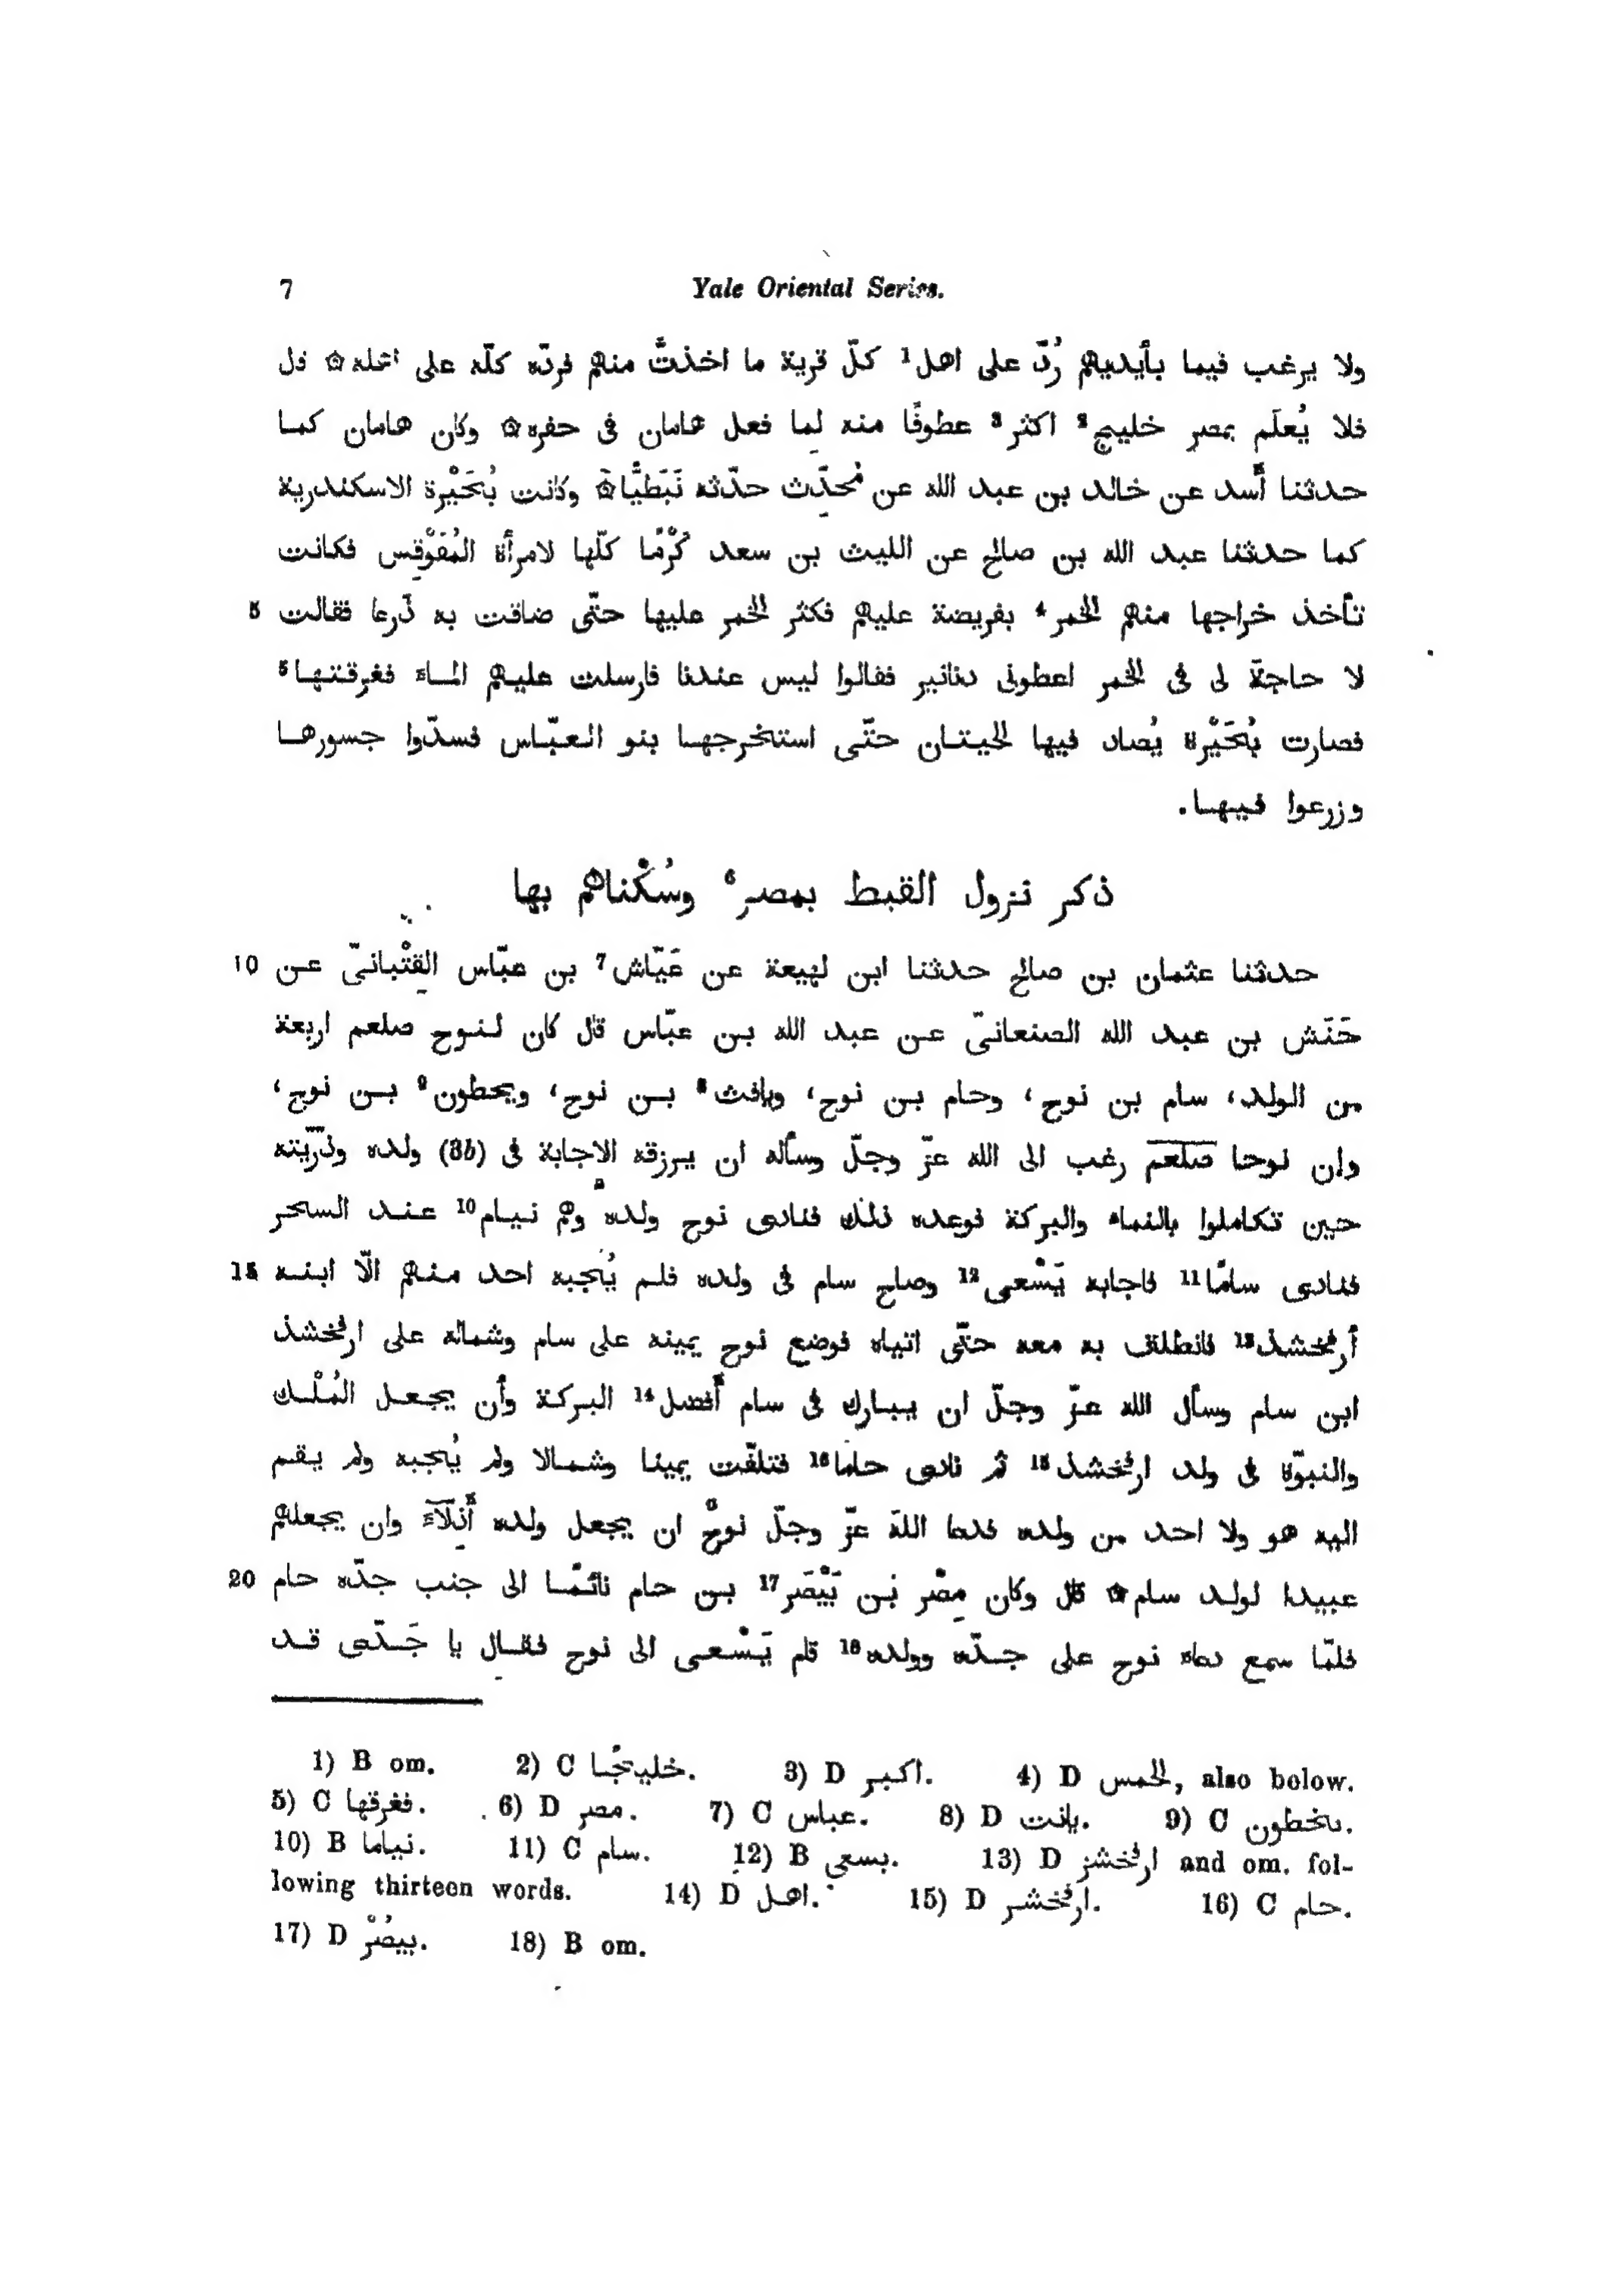 7 Yale Oriental Series.
ولا يرغب فيما بأيديهم رُدّ على اهل1 كلّ قرية ما اخذتَّ منهم فردّه كلّه على اهله ۞ قال
فلا يُعلَم بمصر خليج2 اكثر3 عطوفًا منه لِما فعل هامان فى حفره ۞ وكان هامان كما
حدثنا أَسد عن خالد بن عبد الله عن مُحدِّث حدّثه نَبَطيًّا ۞ وكانت بُحَيْرة الاسكندرية
كما حدثنا عبد الله بن صالح عن الليث بن سعد كَرْمًا كلّها لامرأة المُقَوْقِس فكانت
5 تأخذ خراجها منهم الخمر4 بفريضة عليهم فكثر الخمر عليها حتّى ضاقت به ذَرعا فقالت
لا حاجة لى فى الخمر اعطونى دنانير فقالوا ليس عندنا فارسلت عليهم الماء فغرقتها5
فصارت بُحَيْرة يُصاد فيها الحيتان حتّى استخرجها بنو العبّاس فسدّوا جسورها
وزرعوا فيها.
ذكر نزول القبط بمصر6 وسُكْناهم بها
10 حدثنا عثمان بن صالح حدثنا ابن لهيعة عن عَيّاش7 بن عبّاس القِتْبانىّ عن
حَنَش بن عبد الله الصنعانىّ عن عبد الله بن عبّاس قال كان لنوح صلعم اربعة
من الولد، سام بن نوح، وحام بن نوح، ويافث8 بن نوح، ويحطون9 بن نوح،
وان نوحا صلعم رغب الى الله عزّ وجلّ وسأله ان يرزقه الاجابة فى (3b) ولده وذرّيّته
حين تكاملوا بالنماء والبركة فوعده ذلك فنادى نوح ولده وهم نيام10 عند السحر
15 فنادى سامًا11 فاجابه يَسْعى12 وصاح سام فى ولده فلم يُجبه احد منهم الّا ابنه
أرفخشذ13 فانطلق به معه حتّى اتياه فوضع نوح يمينه على سام وشماله على ارفخشذ
ابن سام وسأل الله عزّ وجلّ ان يبارك فى سام أَفضل14 البركة وأن يجعل المُلْك
والنبوّة فى ولد ارفخشذ15 ثم نادى حاما16 فتلفّت يمينا وشمالا ولم يُجبه ولم يقم
اليه هو ولا احد من ولده فدعا اللهَ عزّ وجلّ نوحٌ ان يجعل ولده أَذِلّآءَ وان يجعلهم
20 عبيدا لولد سام ۞ قال وكان مِصْر بن بَيْصَر17 بن حام نائمًا الى جنب جدّه حام
فلمّا سمع دعاء نوح على جدّه وولده18 قام يَسْعى الى نوح فقال يا جَدّى قد
1) B om. 2) C خليجًا. 3) D اكبر. 4) D الخمس, also below.
5) C فغرقها. 6) D مصر. 7) C عباس. 8) D يافت. 9) C يخطون.
10) B نياما. 11) C سام. 12) B بسعى. 13) D ارفخشز and om. fol-
lowing thirteen words. 14) D اهل. 15) D ارفخشر. 16) C حام.
17) D بيصُرْ. 18) B om.